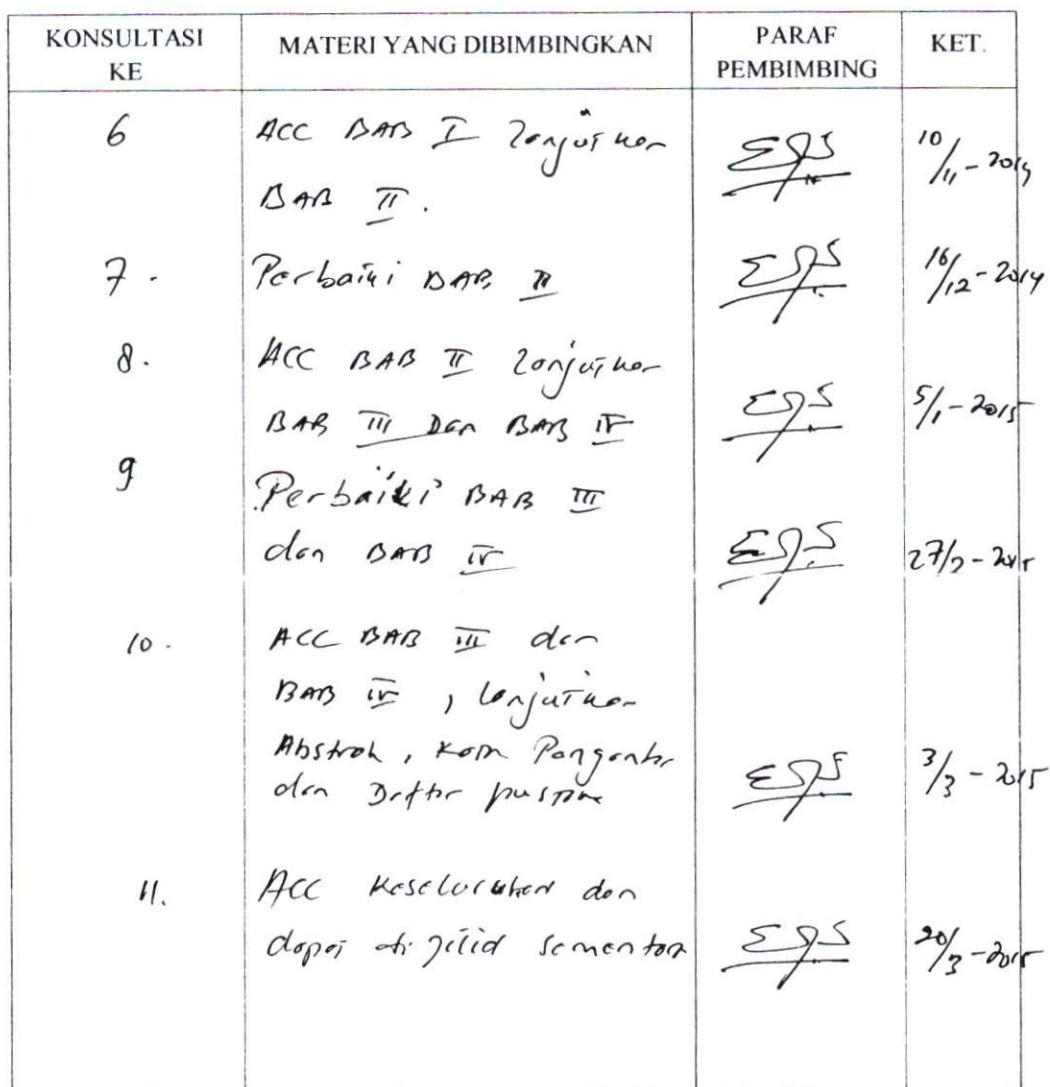 KONSULTASI KE
MATERI YANG DIBIMBINGKAN
PARAF PEMBIMBING
KET.
6 ACC BAB I Lanjutkan 10/11-2014
BAB II.
7. Perbaiki BAB II 16/12-2014
8. ACC BAB II Lanjutkan
BAB III Dan BAB IV 5/1-2015
9 Perbaiki BAB III
dan BAB IV 27/2-2015
10. ACC BAB III dan
BAB IV, Lanjutkan
Abstrak, Kata Pengantar
dan Daftar pustaka 3/3-2015
11. ACC Keseluruhan dan
dapat di jilid sementara 20/3-2015